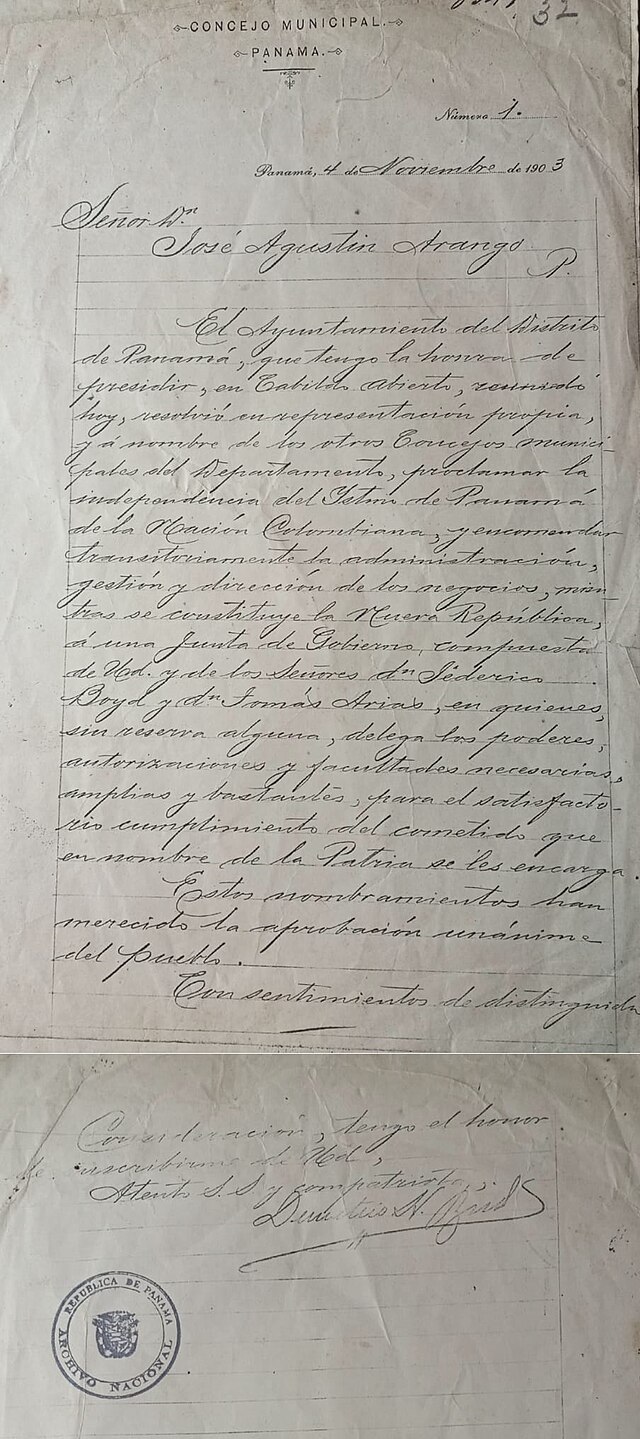 32
CONCEJO MUNICIPAL.
PANAMA.
Número 1.
Panamá, 4 de Noviembre de 1903
Señor Dn
José Agustin Arango
P.
El Ayuntamiento del Distrito
de Panamá, que tengo la honra de
presidir, en Cabildo abierto, reunido
hoy, resolvió en representación propia,
y á nombre de los otros Concejos munici-
pales del Departamento, proclamar la
independencia del Istmo de Panamá
de la Nación Colombiana, y encomendar
transitoriamente la administración,
gestión y dirección de los negocios, mien-
tras se constituye la Nueva República,
á una Junta de Gobierno, compuesta
de Ud. y de los Señores dn Féderico
Boyd y dn Tomás Arias, en quienes,
sin reserva alguna, delega los poderes,
autorizaciones y facultades necesarias,
amplias y bastantes, para el satisfacto-
rio cumplimiento del cometido que
en nombre de la Patria se les encarga.
Estos nombramientos han
merecido la aprobación unánime
del pueblo.
Con sentimientos de distinguida
Consideración, tengo el honor
de suscribirme de Ud,
Atento S. S. y compatriota,
Demetrio H. Brid
REPUBLICA DE PANAMA
ARCHIVO NACIONAL